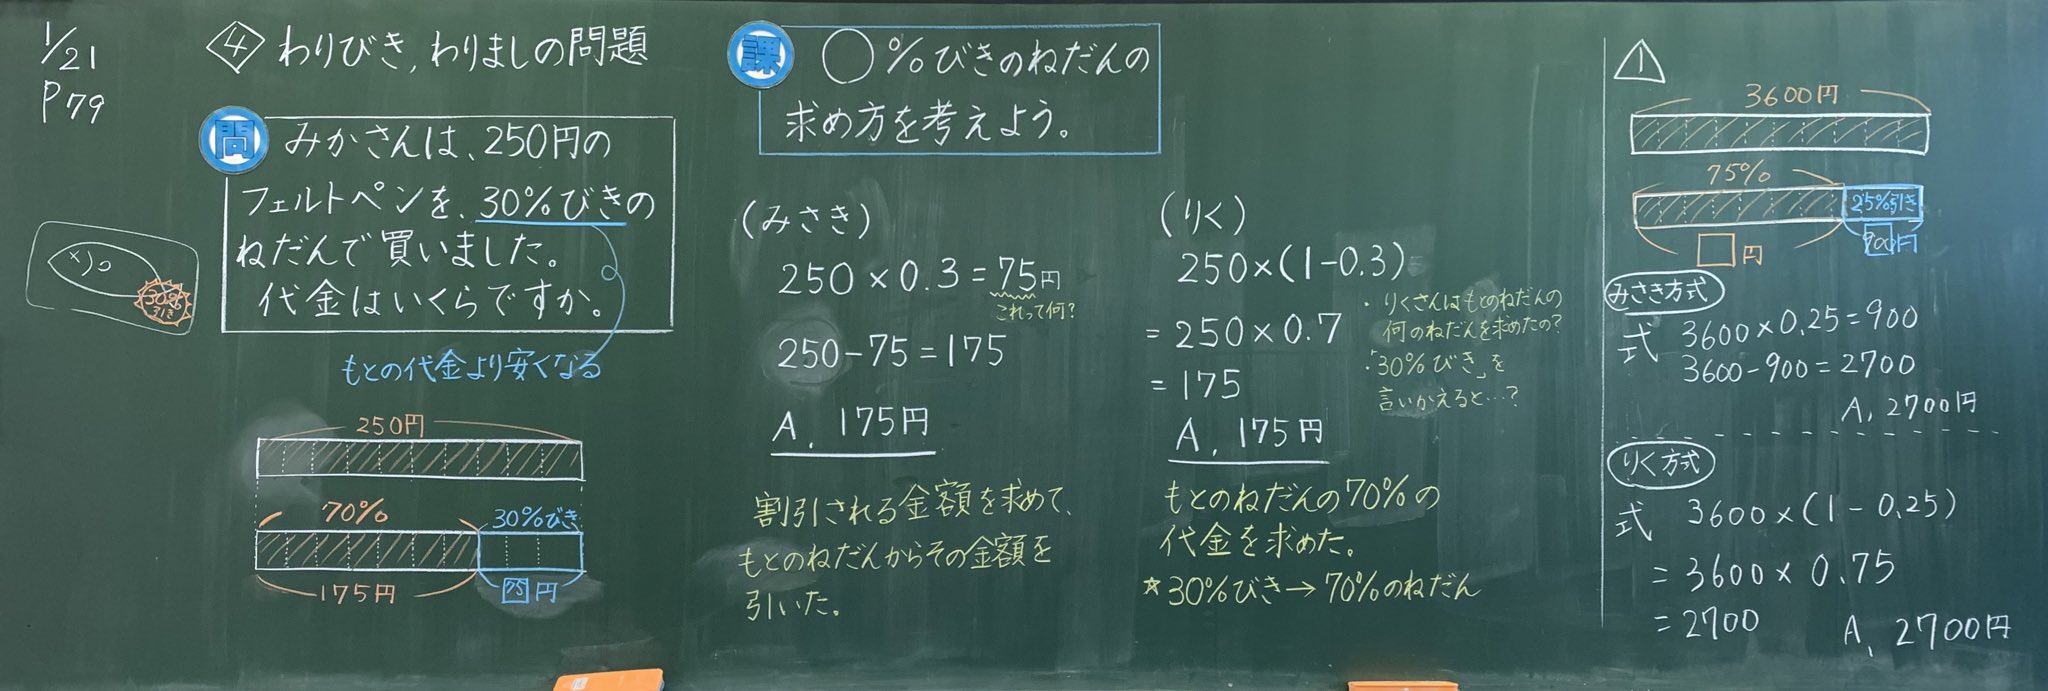 1/21
P79
④ わりびき,わりましの問題
問 みかさんは、250円の
フェルトペンを、30%びきの
ねだんで買いました。
代金はいくらですか。
30%
引き
もとの代金より安くなる
250円
70% 30%びき
175円 75円
課 ○%びきのねだんの
求め方を考えよう。
(みさき)
250×0.3=75円
これって何?
250-75=175
A. 175円
割引される金額を求めて、
もとのねだんからその金額を
引いた。
(りく)
250×(1-0.3)=
=250×0.7
=175
A. 175円
・りくさんはもとのねだんの
何のねだんを求めたの?
・「30%びき」を
言いかえると…?
もとのねだんの70%の
代金を求めた。
☆30%びき→70%のねだん
1
3600円
75% 25%引き
□円 900円
みさき方式
式 3600×0.25=900
3600-900=2700
A. 2700円
りく方式
式 3600×(1-0.25)
=3600×0.75
=2700 A. 2700円